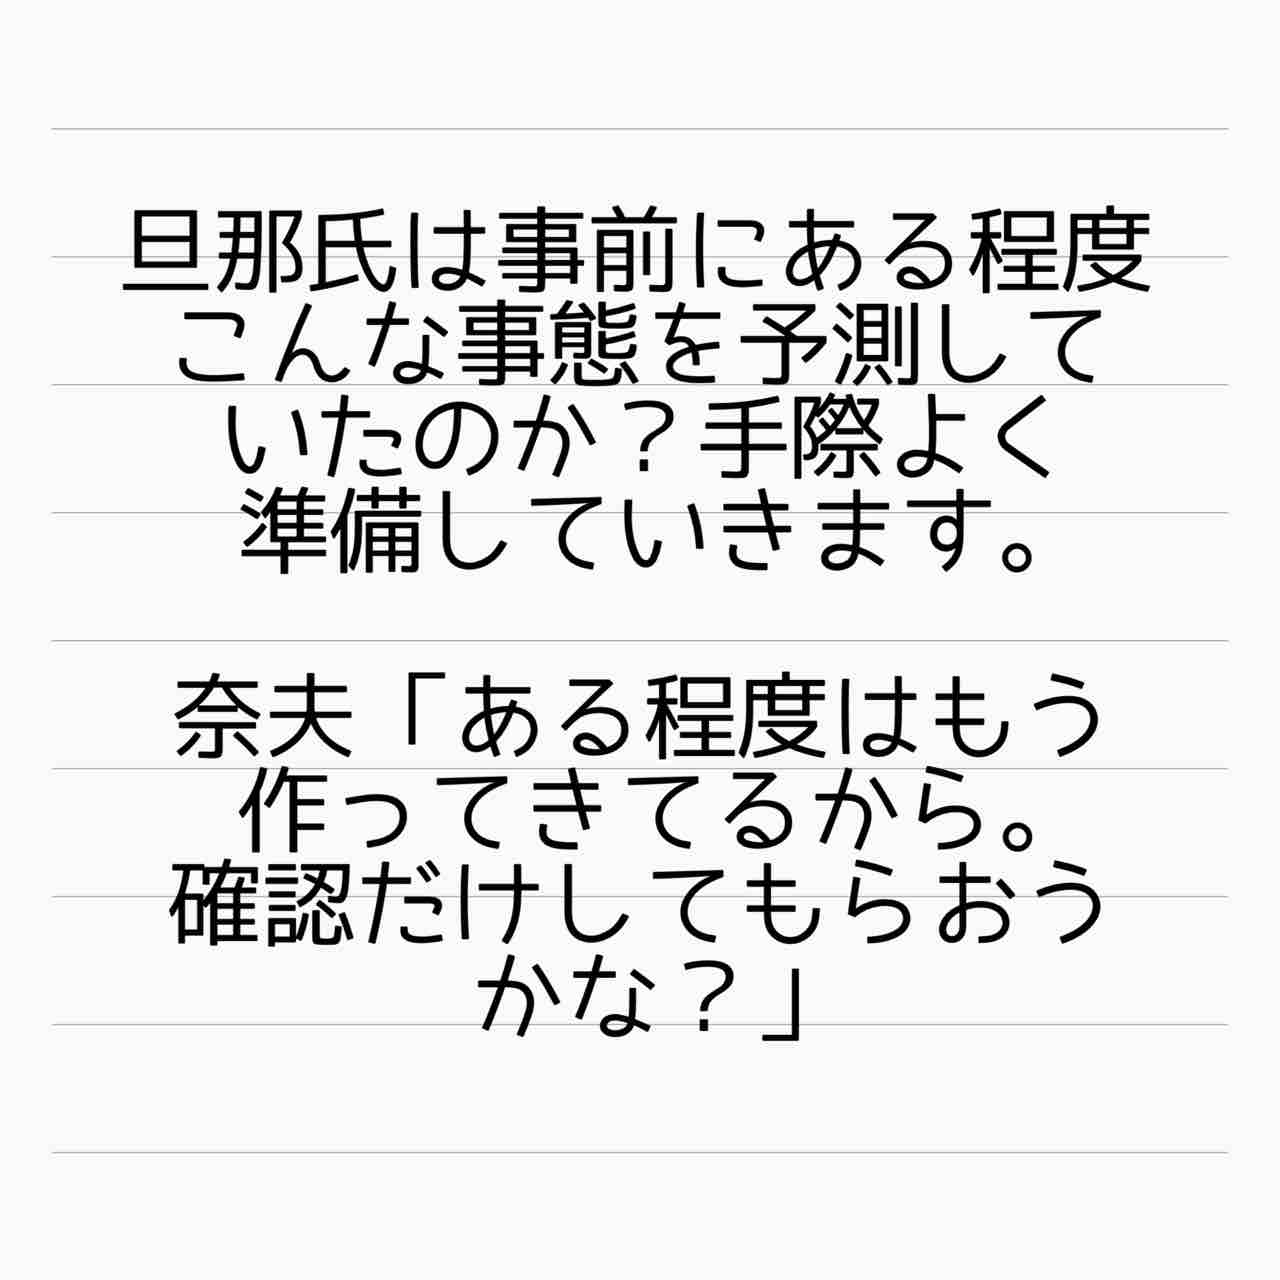 旦那氏は事前にある程度
こんな事態を予測して
いたのか？手際よく
準備していきます。
奈夫「ある程度はもう
作ってきてるから。
確認だけしてもらおう
かな？」